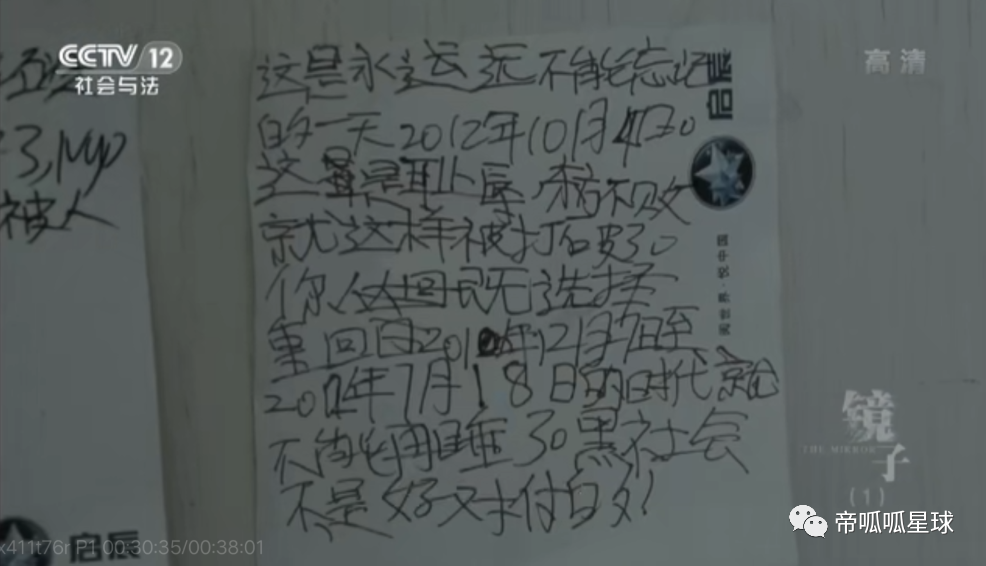 CCTV 12
社会与法
高清
被人
这是永远远不能忘记
的一天2012年10月4日。
这是耻辱 不败
就这样被打破了。
你 既选择
重回 201 年12月7日至
201 年7月18日的时代就
不能再睡了。黑社会
不是好对付的!
启辰
启辰
镜子
THE MIRROR
(1)
x411t76r P1 00:30:35/00:38:01
帝呱呱星球